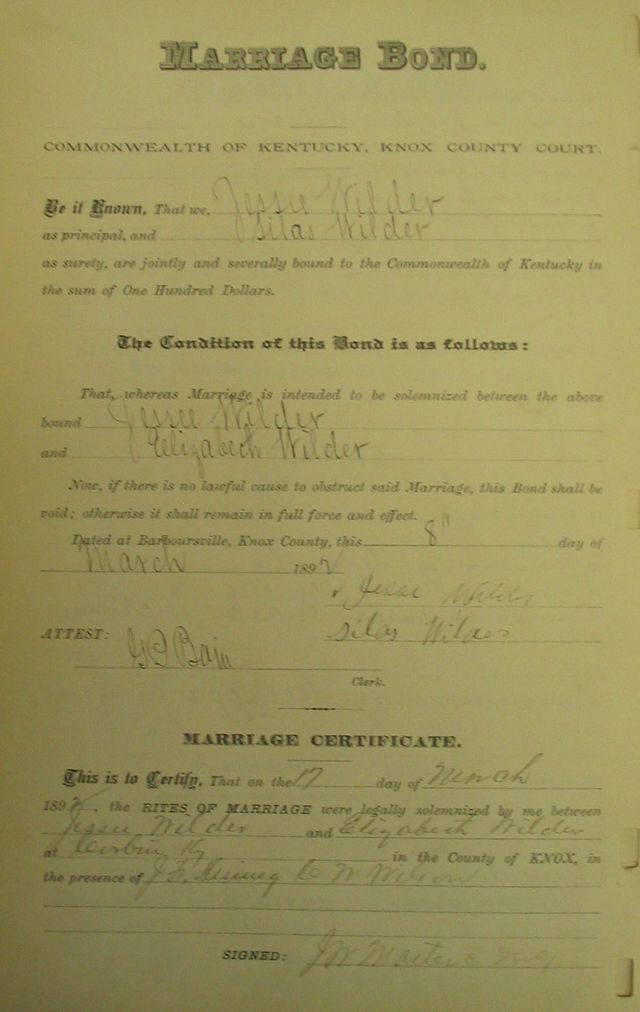 MARRIAGE BOND.
COMMONWEALTH OF KENTUCKY, KNOX COUNTY COURT.
Be it Known, That we, Jessee Wilder
as principal, and Silas Wilder
as surety, are jointly and severally bound to the Commonwealth of Kentucky in
the sum of One Hundred Dollars.
The Condition of this Bond is as follows:
That, whereas Marriage is intended to be solemnized between the above
bound Jessee Wilder
and Elizabeth Wilder
Now, if there is no lawful cause to obstruct said Marriage, this Bond shall be
void; otherwise it shall remain in full force and effect.
Dated at Barboursville, Knox County, this 8" day of
March 1892
Jesse Wilder
ATTEST: Silas Wilder
Bain
Clerk.
MARRIAGE CERTIFICATE.
This is to Certify, That on the 17 day of March
1892, the RITES OF MARRIAGE were legally solemnized by me between
Jessee Wilder and Elizabeth Wilder
at Corbin Ky in the County of KNOX, in
the presence of W Wilson
SIGNED: J W